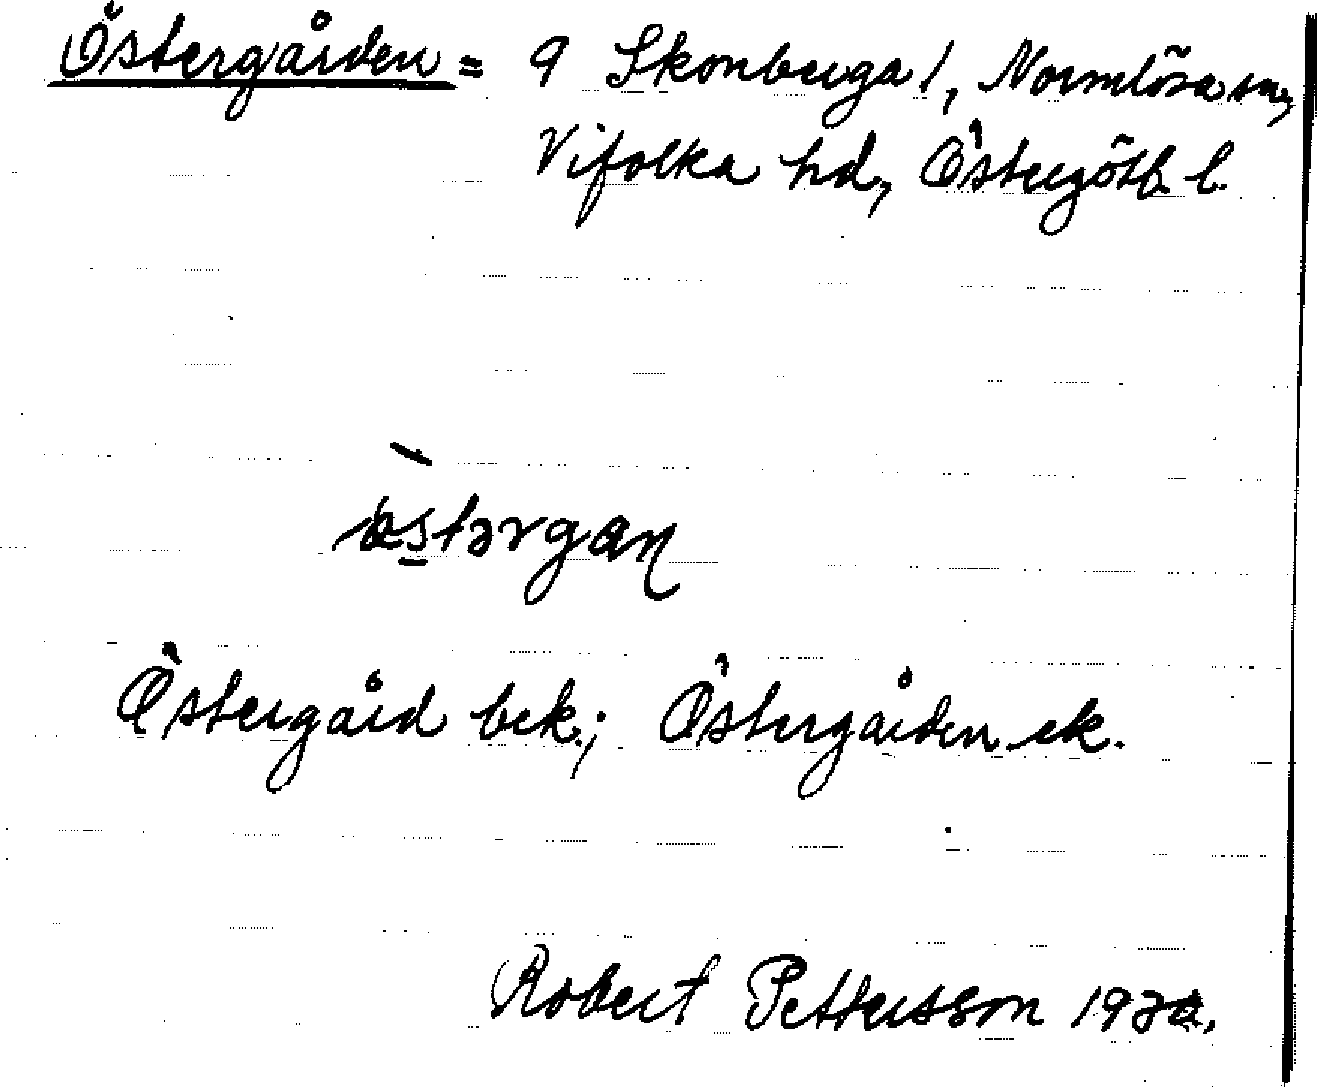 Östergården = 9 Skonberga 1, Normlösa sn,
Vifolka hd, Östergötl. l.
östərgan
Östergård bek.; Östergården ek.
Robert Pettersson